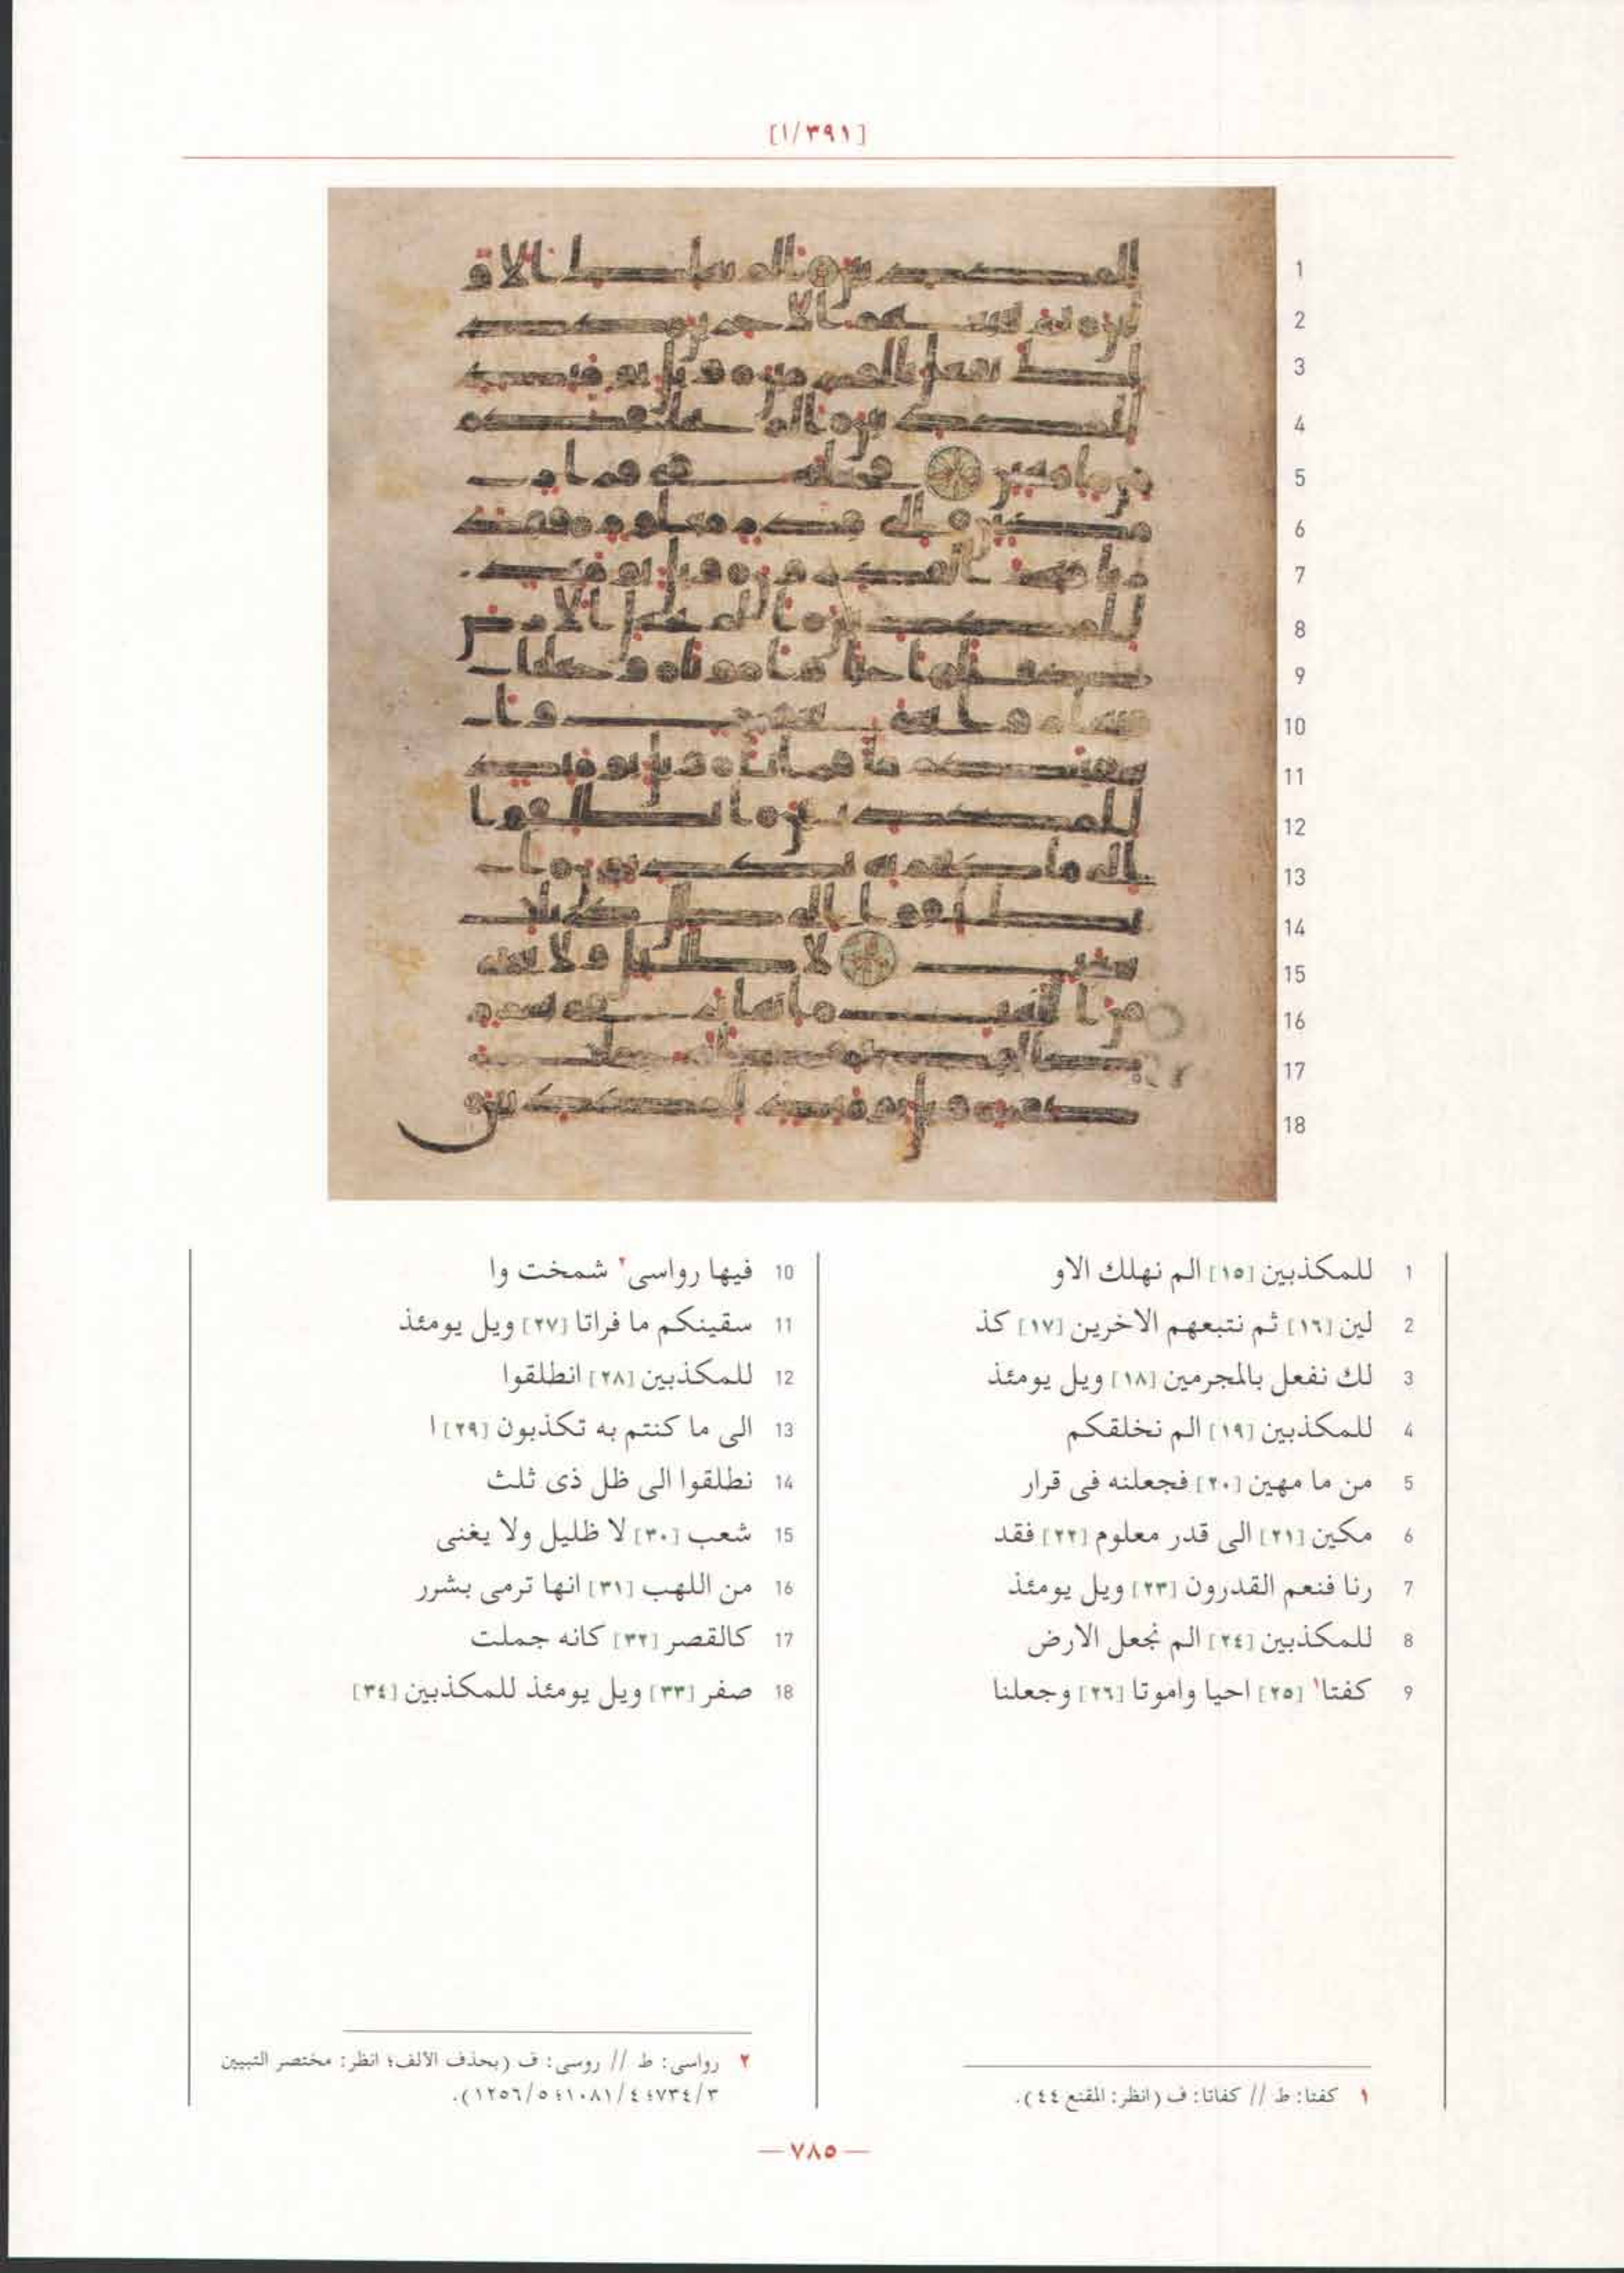 [٣٩١/١]
1
2
3
4
5
6
7
8
9
10
11
12
13
14
15
16
17
18
1 للمكذبين [١٥] الم نهلك الاو
2 لين [١٦] ثم نتبعهم الاخرين [١٧] كذ
3 لك نفعل بالمجرمين [١٨] ويل يومئذ
4 للمكذبين [١٩] الم نخلقكم
5 من ما مهين [٢٠] فجعلنه فى قرار
6 مكين [٢١] الى قدر معلوم [٢٢] فقد
7 رنا فنعم القدرون [٢٣] ويل يومئذ
8 للمكذبين [٢٤] الم نجعل الارض
9 كفتا١ [٢٥] احيا واموتا [٢٦] وجعلنا
10 فيها رواسى٢ شمخت وا
11 سقينكم ما فراتا [٢٧] ويل يومئذ
12 للمكذبين [٢٨] انطلقوا
13 الى ما كنتم به تكذبون [٢٩] ا
14 نطلقوا الى ظل ذى ثلث
15 شعب [٣٠] لا ظليل ولا يغنى
16 من اللهب [٣١] انها ترمى بشرر
17 كالقصر [٣٢] كانه جملت
18 صفر [٣٣] ويل يومئذ للمكذبين [٣٤]
١ كفتا: ط // كفاتا: ف (انظر: المقنع ٤٤).
٢ رواسى: ط // روسى: ف (بحذف الالف؛ انظر: مختصر التبيين
٧٣٤/٣؛ ١٠٨١/٤؛ ١٢٥٦/٥).
— ٧٨٥ —